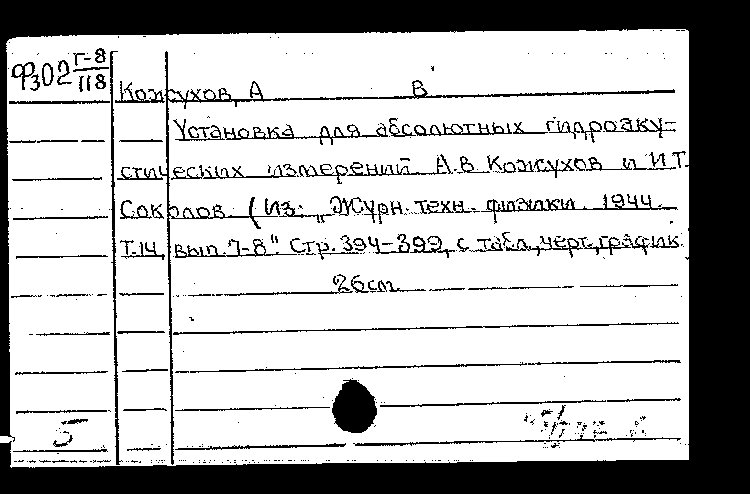 Ф302 Г-8/118
Кожухов, А В
Установка для абсолютных гидроаку-
стических измерений. А.В. Кожухов и И.Т.
Соколов. (Из: „Журн. техн. физики. 1944.
Т.14, вып. 7-8". Стр. 394-399, с табл., черт., график.
26см.
5